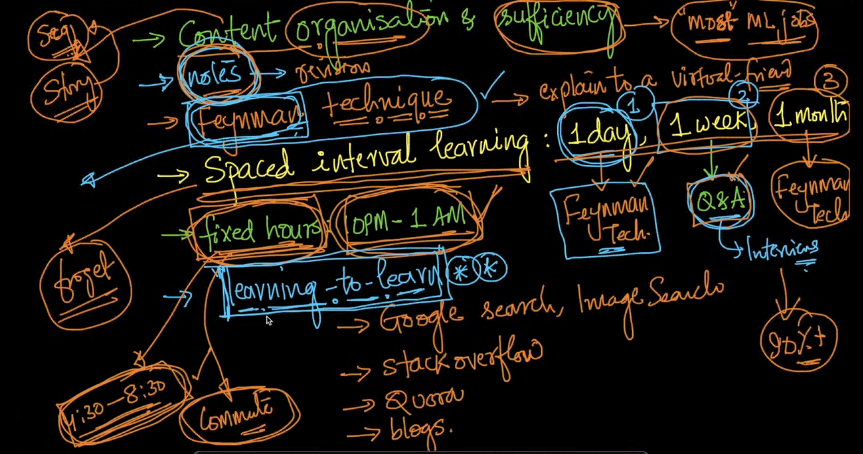 Seq
→ Content organisation & sufficiency → "most" ML jobs
Story
→ notes → revision
→ Feynman technique ✓ → explain to a virtual-friend
→ Spaced interval learning : 1 day, 1 week 1 month
1 2 3
Feynman Tech.
Q&A
Feynman Tech
→ fixed hours: 10PM - 1 AM
Interviews
90%+
forget
→ learning-to-learn * *
→ Google search, Image Search
→ stackoverflow
→ Quora
→ blogs.
:30 - 8:30
Commute